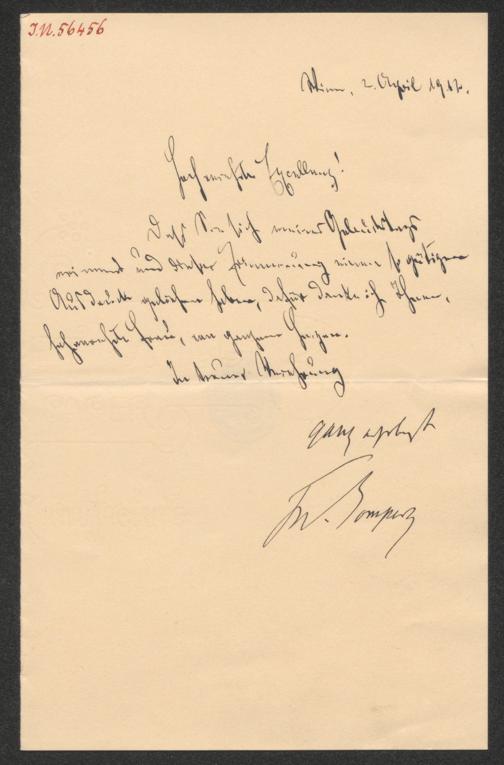 J.N. 56456
Wien, 2. April 1912.
Hochverehrte Excellenz!
Daß Sie sich meines Geburtstags
erinnert und dieser Erinnerung einen so gütigen
Ausdruck geliehen haben, dafür danke ich Ihnen,
hochverehrte Frau, von ganzem Herzen.
In treuer Verehrung
ganz ergebenst
Th. Gomperz